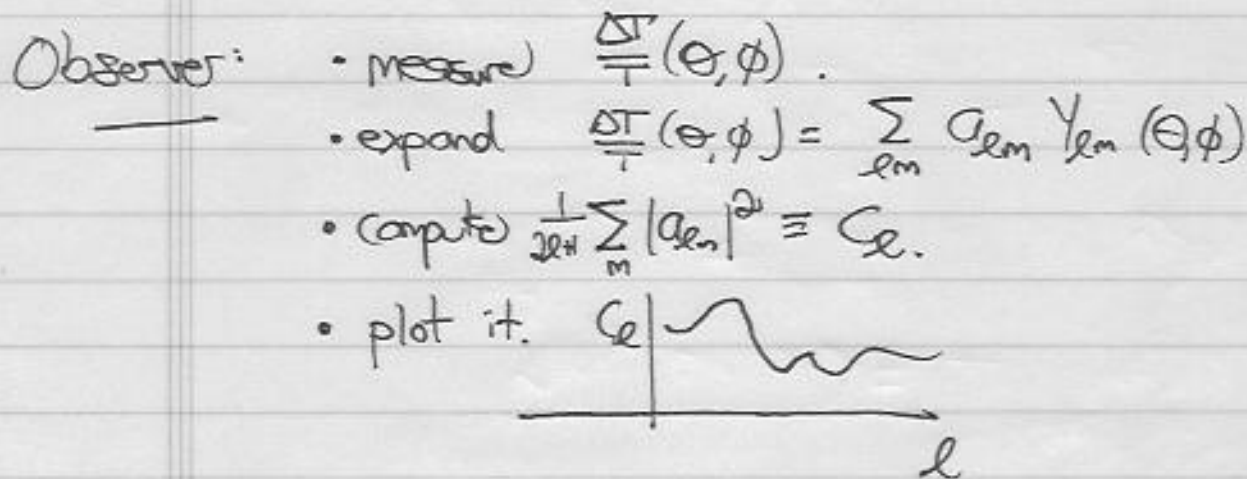 Observer: • measure ΔT/T (θ,φ).
• expand ΔT/T (θ,φ) = Σ_{ℓm} a_{ℓm} Y_{ℓm} (θ,φ)
• compute 1/(2ℓ+1) Σ_m |a_{ℓm}|² ≡ C_ℓ.
• plot it. C_ℓ
ℓ